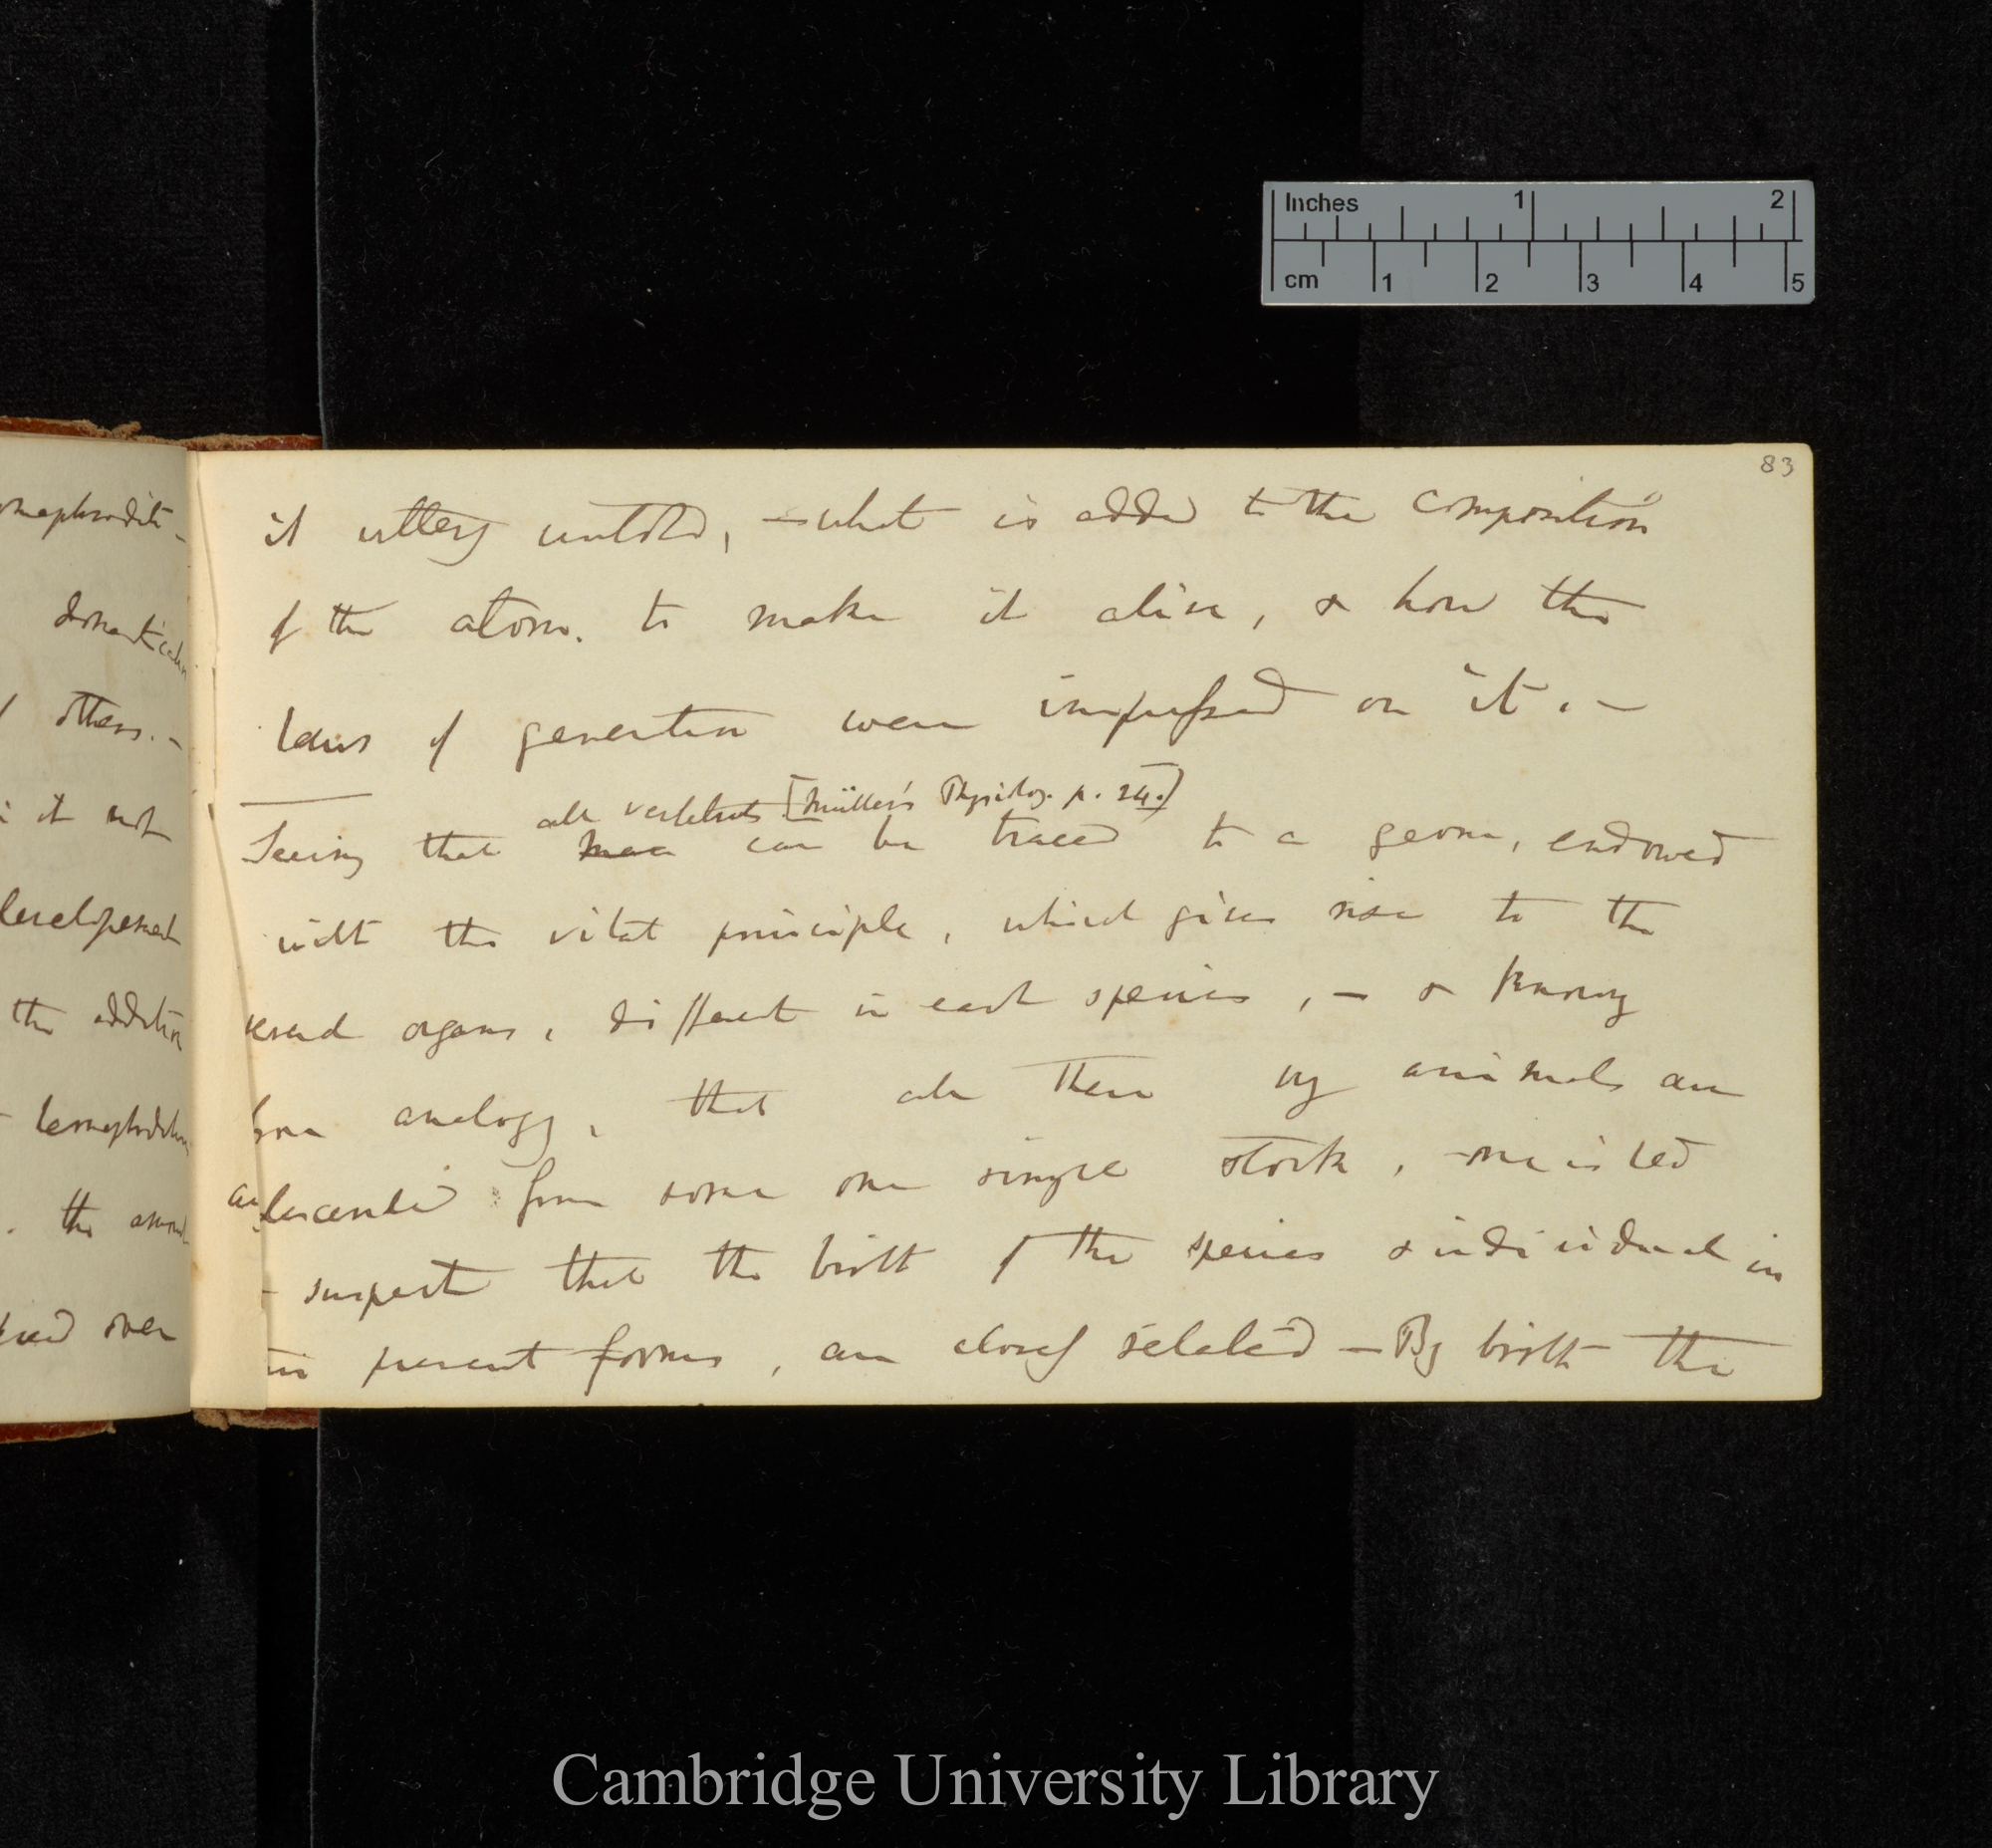 Inches 1 2
cm 1 2 3 4 5
83
it utterly untold, — what is added to the composition
of the atom. to make it alive, & how the
laws of generation were impressed on it. —
all vertebrates [Müller's Physiology. p. 24.]
Seeing that man can be traced to a germ, endowed
with the vital principle, which gives rise to the
several organs, different in each species, — & knowing
from analogy, that all these animals are
descended from some one single stock, one is led
to suspect that the birth of the species & individual in
their present forms, are closely related — By birth the
others. —
it not
developement
the addition
the
over
Cambridge University Library